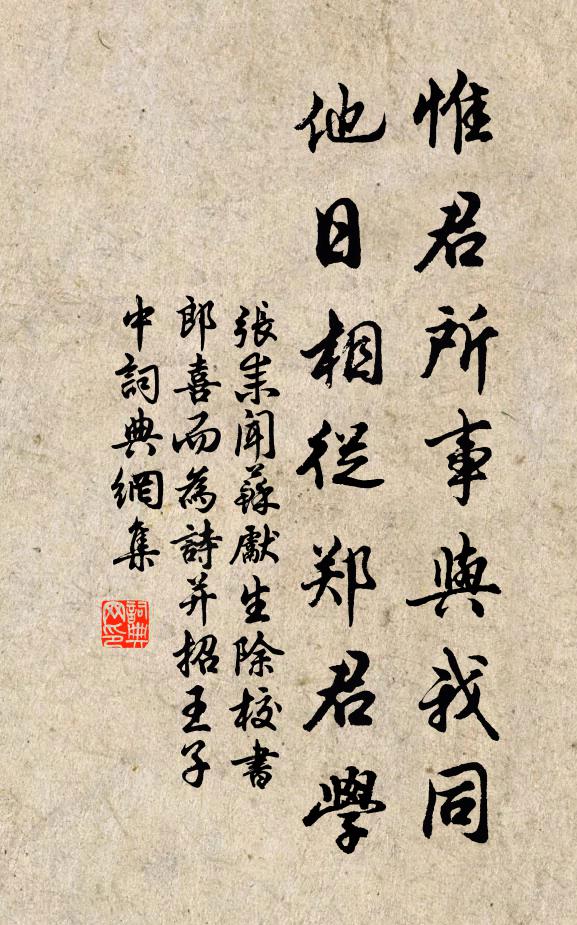 惟君所事與我同
他日相從郑君學
張耒聞蘇獻生除校書
郎喜而為詩并招王子
中詞典網集
詞典
网印